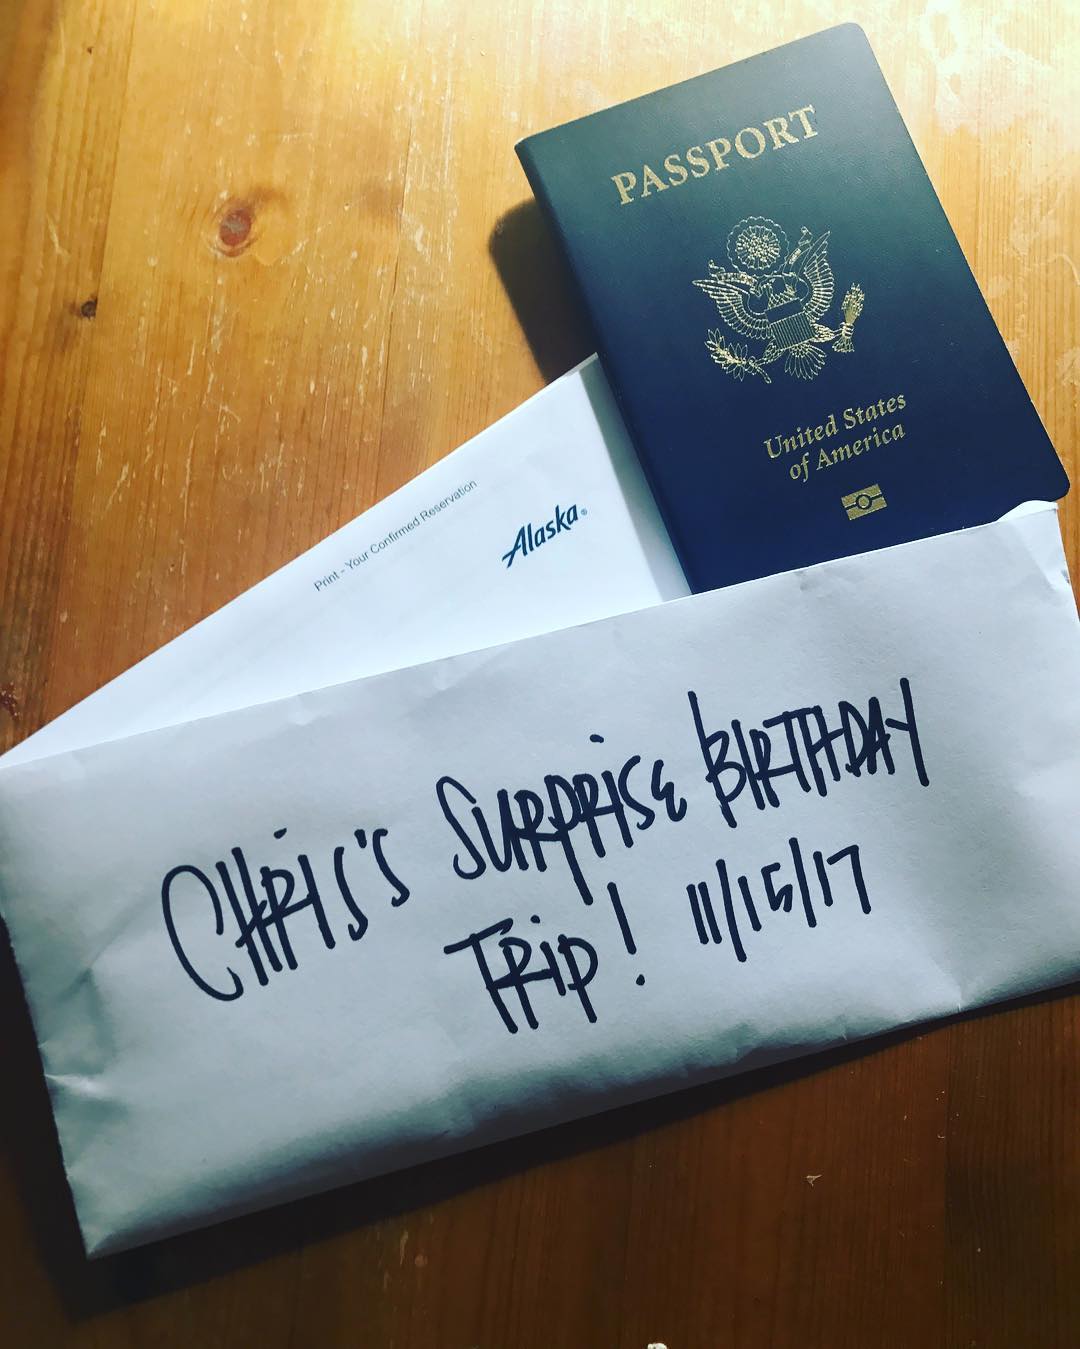 PASSPORT
United States
of America
Print - Your Confirmed Reservation
Alaska®
CHRIS'S SURPRISE BIRTHDAY
TRIP! 11/15/17